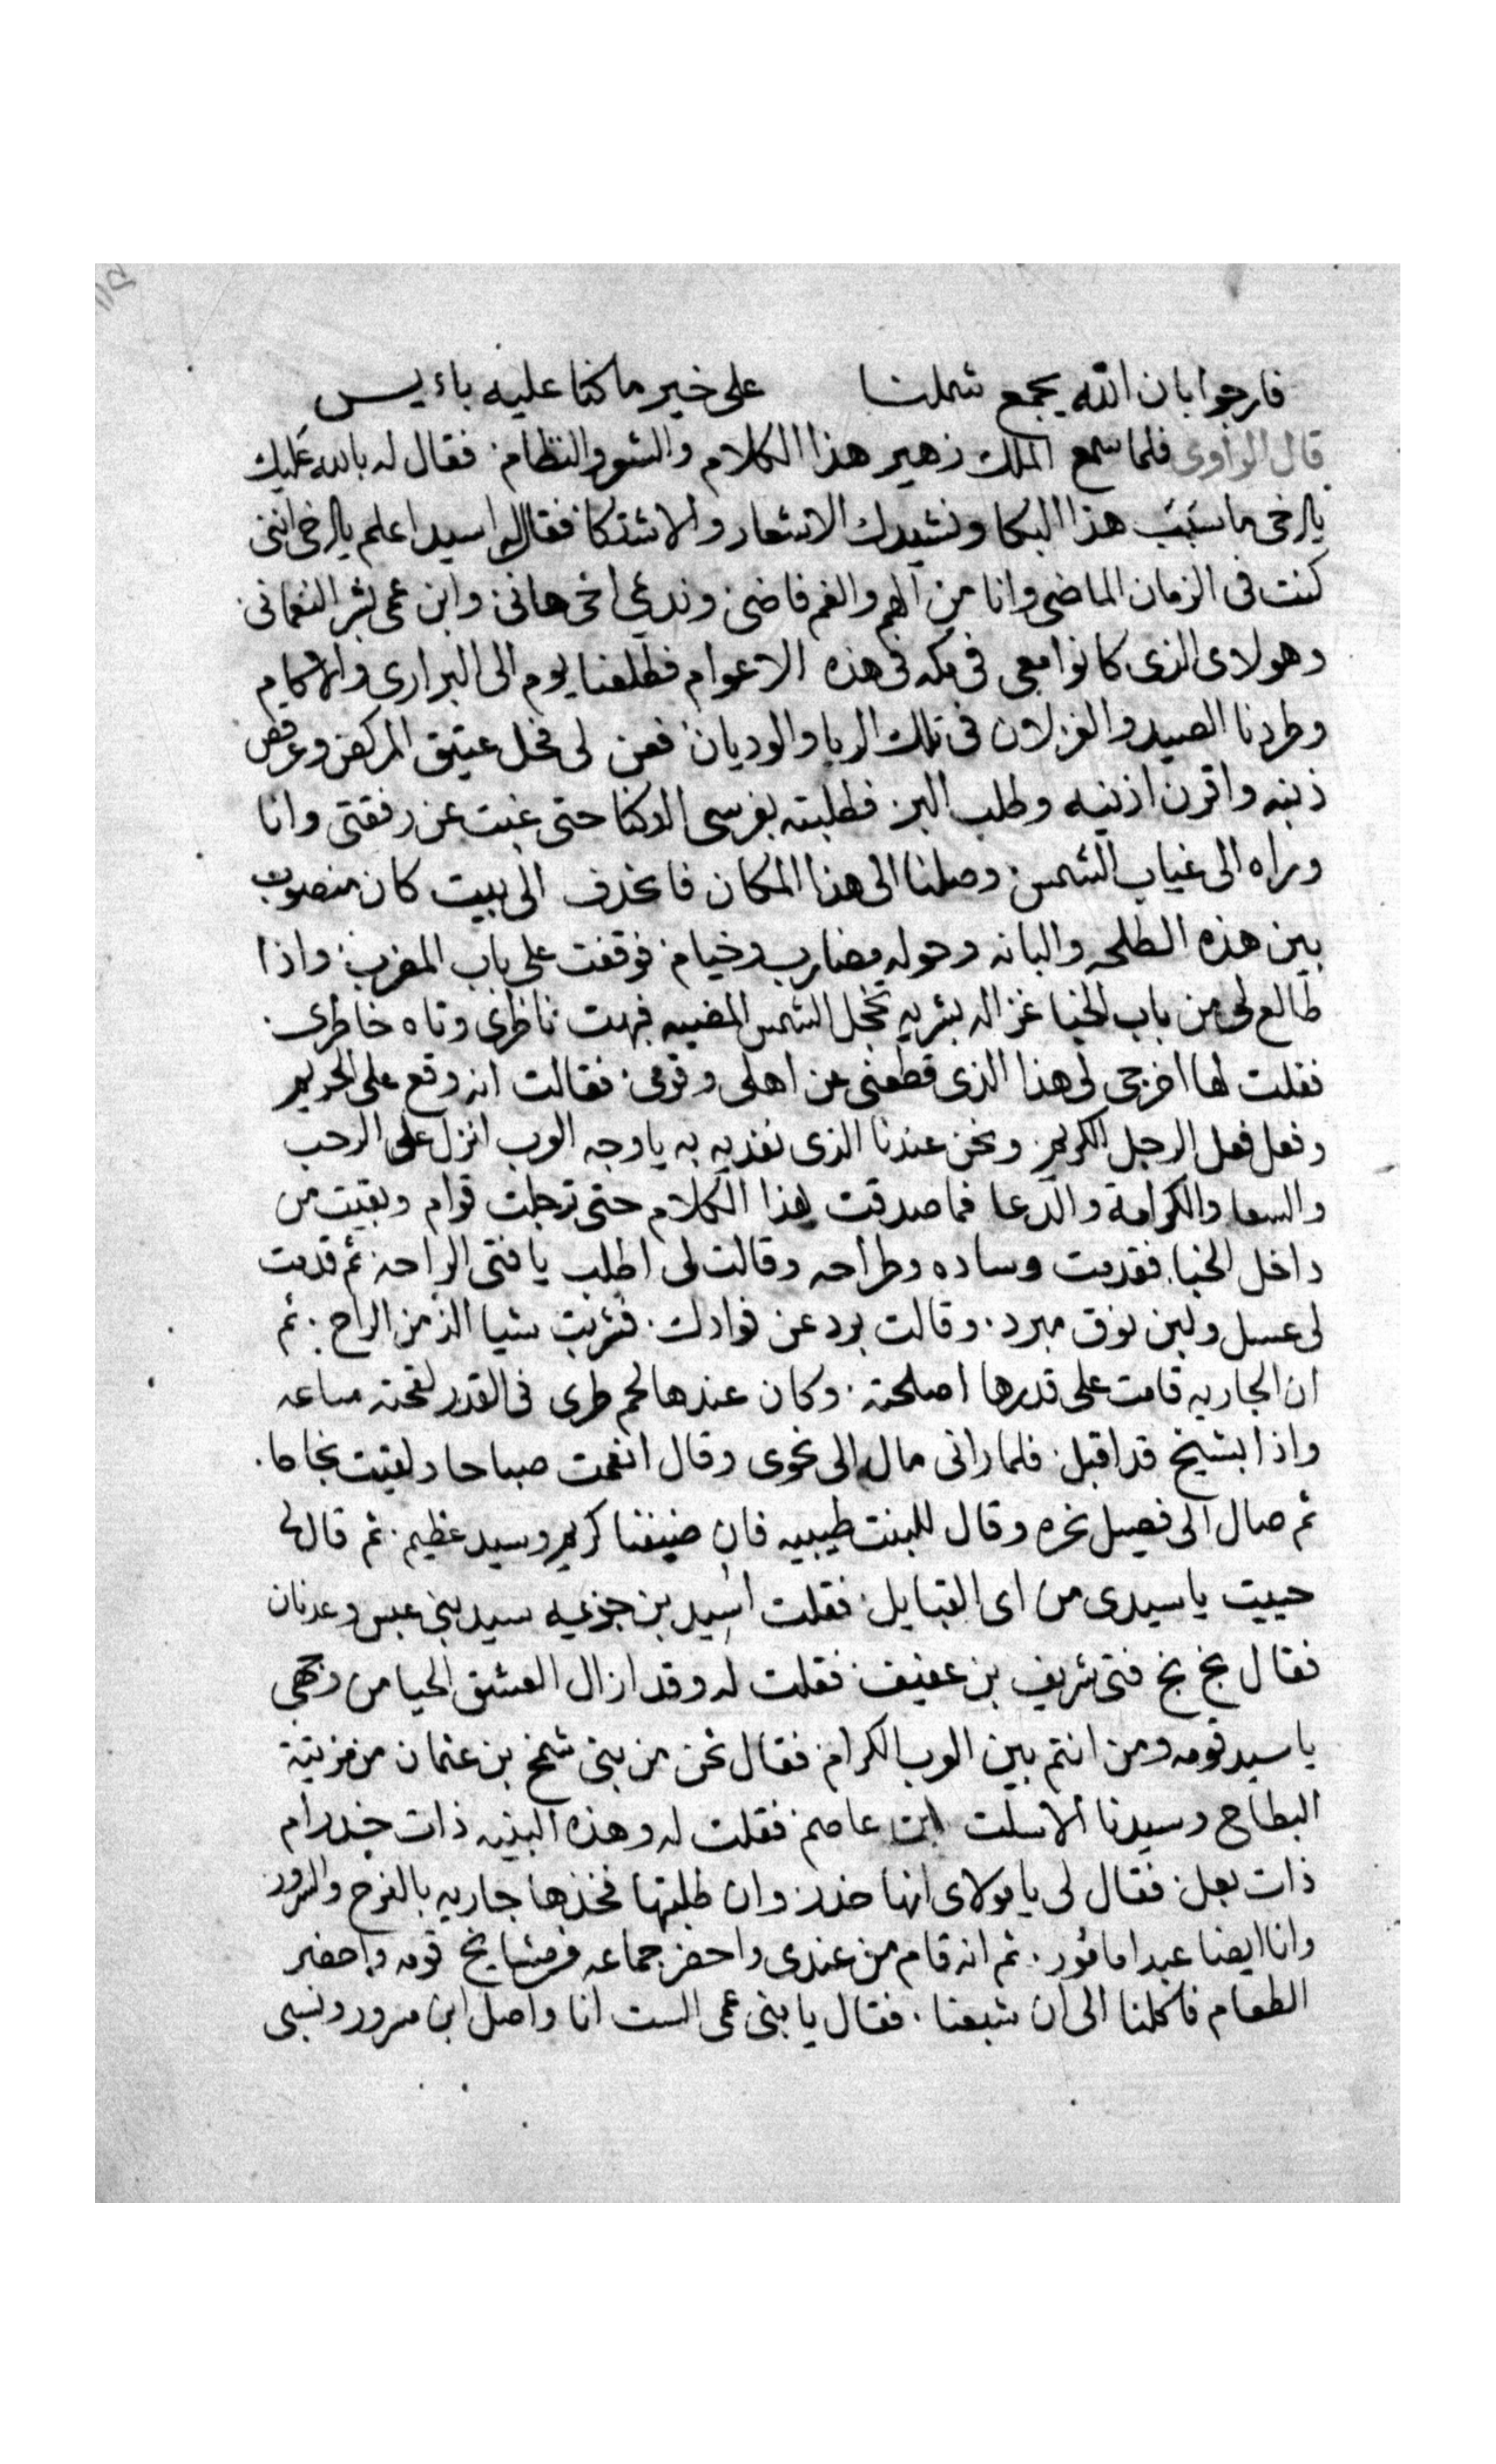 فارجوا بان الله يجمع شملنا على خير ما كنا عليه باءيس
قال الراوى فلما سمع الملك زهير هذا الكلام والشعر والنظام فقال له بالله عليك
يا اخى ما سبب هذا البكا ونشيدك الاشعار والاشتكا فقال له اسيد اعلم يا اخى اننى
كنت فى الزمان الماضى وانا من الهم والغم فاضى ونديمى اخى هانى وابن عمى بشر النعمانى
وهولاى الذى كانوا معى فى مكه فى هذه الاعوام فطلعنا يوم الى البرارى والاكام
وطردنا الصيد والغزلان فى تلك الربا والوديان فعن لى فحل عتيق المركض وعرقص
ذنبه واقرن اذنيه وطلب البر فطلبته بفرسى الدكنا حتى غبت عن رفقتى وانا
وراه الى غياب الشمس وصلنا الى هذا المكان فانحذف الى بيت كان منصوب
بين هذه الطلحه والبانه وحوله مضارب وخيام فوقفت على باب المضرب واذا
طالع لى من باب الخبا غزاله بشريه تخجل الشمس المضييه فبهت ناظرى وتاه خاطرى
فقلت لها اخرجى لى هذا الذى قطعنى عن اهلى وقومى فقالت انه وقع على الحريم
وفعل فعل الرجل الكريم ونحن عندنا الذى نفديه به يا وجه العرب انزل على الرحب
والسعا والكرامة والدعا فما صدقت بهذا الكلام حتى ترجلت قوام وبقيت من
داخل الخبا فقدمت وساده وطراحه وقالت لى اطلب يا فتى الراحه ثم قدمت
لى عسل ولبن نوق مبرد وقالت برد عن فوادك فشربت شيا الذ من الراح ثم
ان الجاريه قامت على قدرها اصلحته وكان عندها لحم طرى فى القدر لقحته ساعه
واذا بشيخ قد اقبل فلما رانى مال الى نحوى وقال انعمت صباحا ولقيت نجاحا
ثم صال الى فصيل نحره وقال للبنت طيبيه فان ضيفنا كريم وسيد عظيم ثم قال لى
حييت يا سيدى من اى القبايل فقلت اسيد بن جزيمه سيد بنى عبس وعدنان
فقال بخ بخ فتى شريف بن عفيف فقلت له وقد ازال العشق الحيا من وجهى
يا سيد قومه ومن انتم بين العرب الكرام فقال نحن من بنى شمخ بن عثمان من مزينة
البطاح وسيدنا الاسلت ابن عاصم فقلت له وهذه البنيه ذات خدر ام
ذات بعل فقال لى يا مولاى انها خدر وان طلبتها فخذها جاريه بالفرح والسرور
وانا ايضا عبدا مامور ثم انه قام من عندى واحضر جماعه من مشايخ قومه واحضر
الطعام فاكلنا الى ان شبعنا فقال يا بنى عمى الست انا واصل ابن مسرور ونسبى